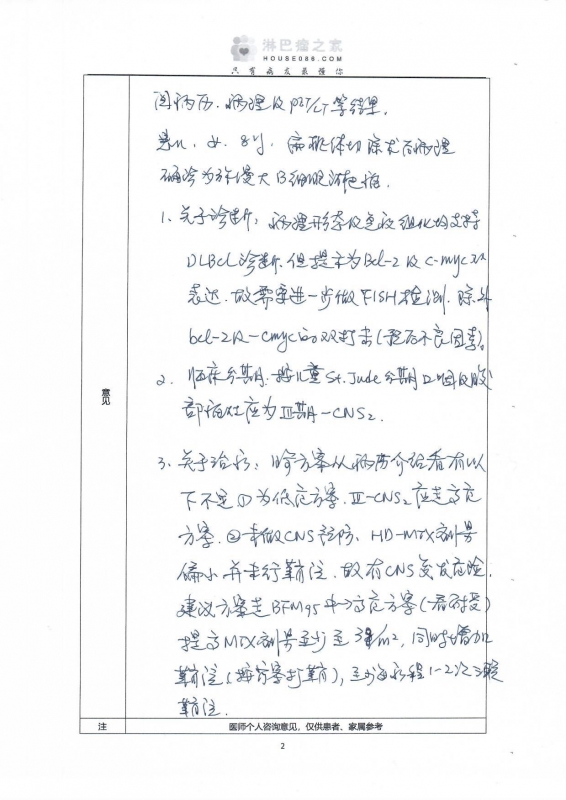 淋巴瘤之家
HOUSE086.COM
只有病友最懂你
意见
阅病历、病理及PET/CT等结果.
患儿, 女, 8岁, 扁桃体切除术后病理
确诊为弥漫大B细胞淋巴瘤.
1. 关于诊断: 病理形态及免疫组化均支持
DLBCL诊断, 但提示为Bcl-2及C-myc双
表达. 故需要进一步做FISH检测, 除外
bcl-2及-cmyc的双打击(预后不良因素).
2. 临床分期: 按儿童St.Jude分期 口咽及腹
部病灶应为Ⅲ期-CNS2.
3. 关于治疗: 目前方案从病历介绍看有以
下不足 ①为低危方案. Ⅲ-CNS2应是高危
方案. ②未做CNS预防, HD-MTX剂量
偏小并未行鞘注. 故有CNS复发风险.
建议方案是BFM95中→高危方案(看耐受)
提高MTX剂量至少至3g/m², 同时增加
鞘注(按方案打鞘), 至少每疗程1-2次三联
鞘注.
注
医师个人咨询意见，仅供患者、家属参考
2